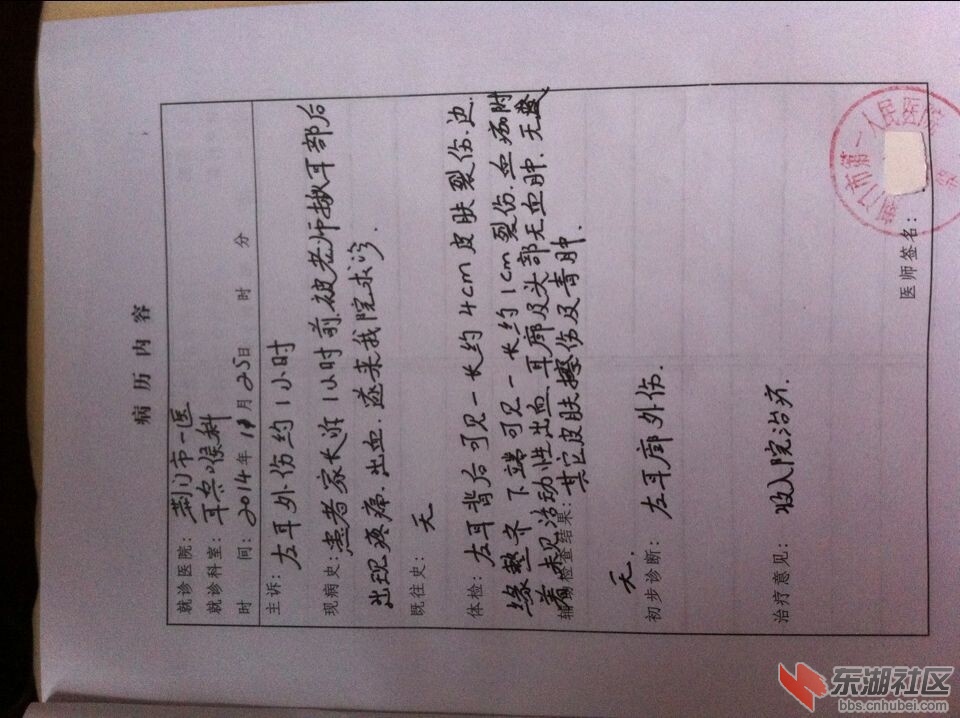 病历内容
就诊医院: 荆门市一医
就诊科室: 耳鼻喉科
时 间: 2014年 月25日 时 分
主诉: 左耳外伤约1小时
现病史: 患者家长诉1小时前被老师揪耳部后
出现疼痛.出血.遂来我院求诊.
既往史: 无
体检: 左耳背后可见一长约4cm皮肤裂伤.边
缘整齐 下端可见一长约1cm裂伤.血痂附
着 未见活动性出血 耳廓及头部无血肿.无
辅助检查结果: 其它皮肤擦伤及青肿.
无.
初步诊断: 左耳廓外伤.
治疗意见: 收入院治疗.
医师签名:
荆门市第一人民医院
东湖社区
bbs.cnhubei.com